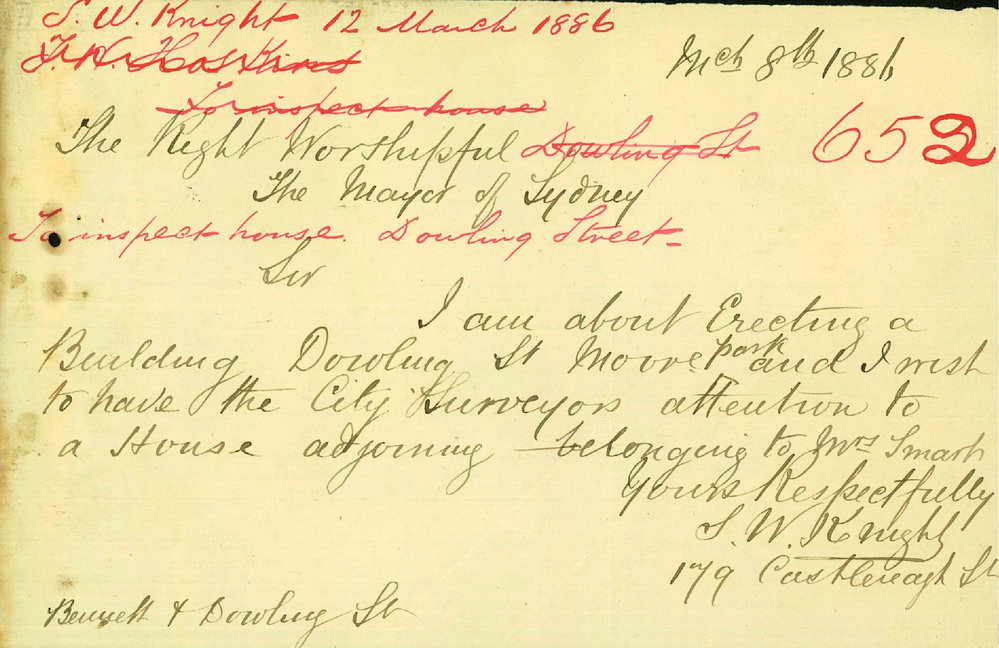 S. W. Knight 12 March 1886
F. H. Hoskins
Mch 8th 1886
To inspect house
The Right Worshipful Dowling St 652
The Mayor of Sydney
To inspect house. Dowling Street
Sir
I am about Erecting a
Building Dowling St Moore park and I wish
to have the City Surveyors attention to
a House adjoining belonging to Mrs Smart
Yours Respectfully
S. W. Knight
179 Castlereagh St
Bennett & Dowling St